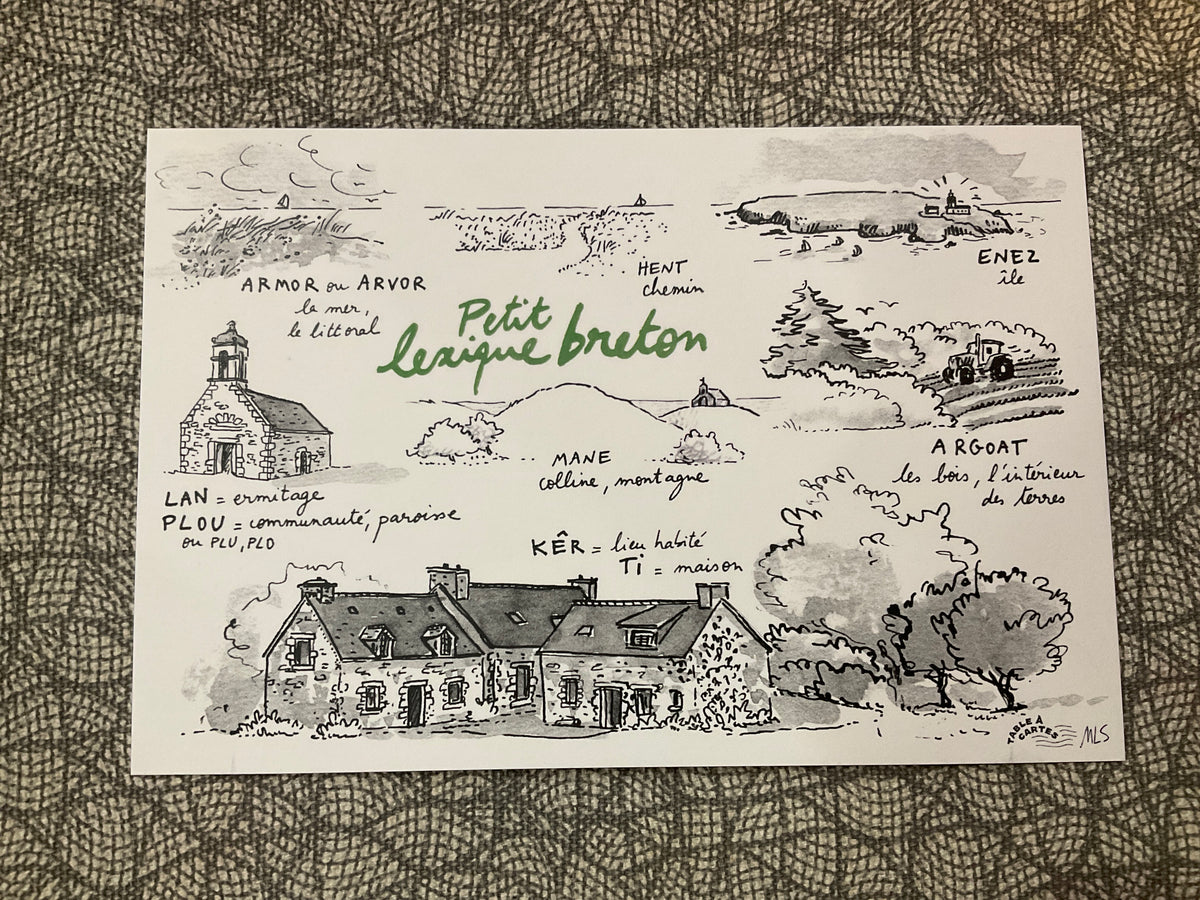 ARMOR ou ARVOR
la mer,
le littoral
HENT
chemin
ENEZ
île
Petit
lexique breton
LAN = ermitage
PLOU = communauté, paroisse
ou PLU, PLO
MANE
colline, montagne
ARGOAT
les bois, l'intérieur
des terres
KÊR = lieu habité
Ti = maison
TABLE A
CARTES
MLS